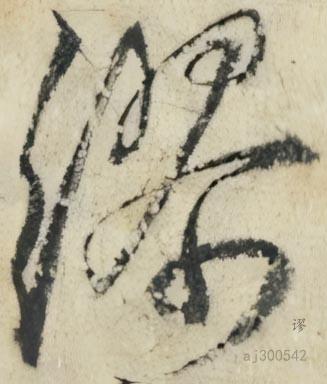 谬
谬
aj300542